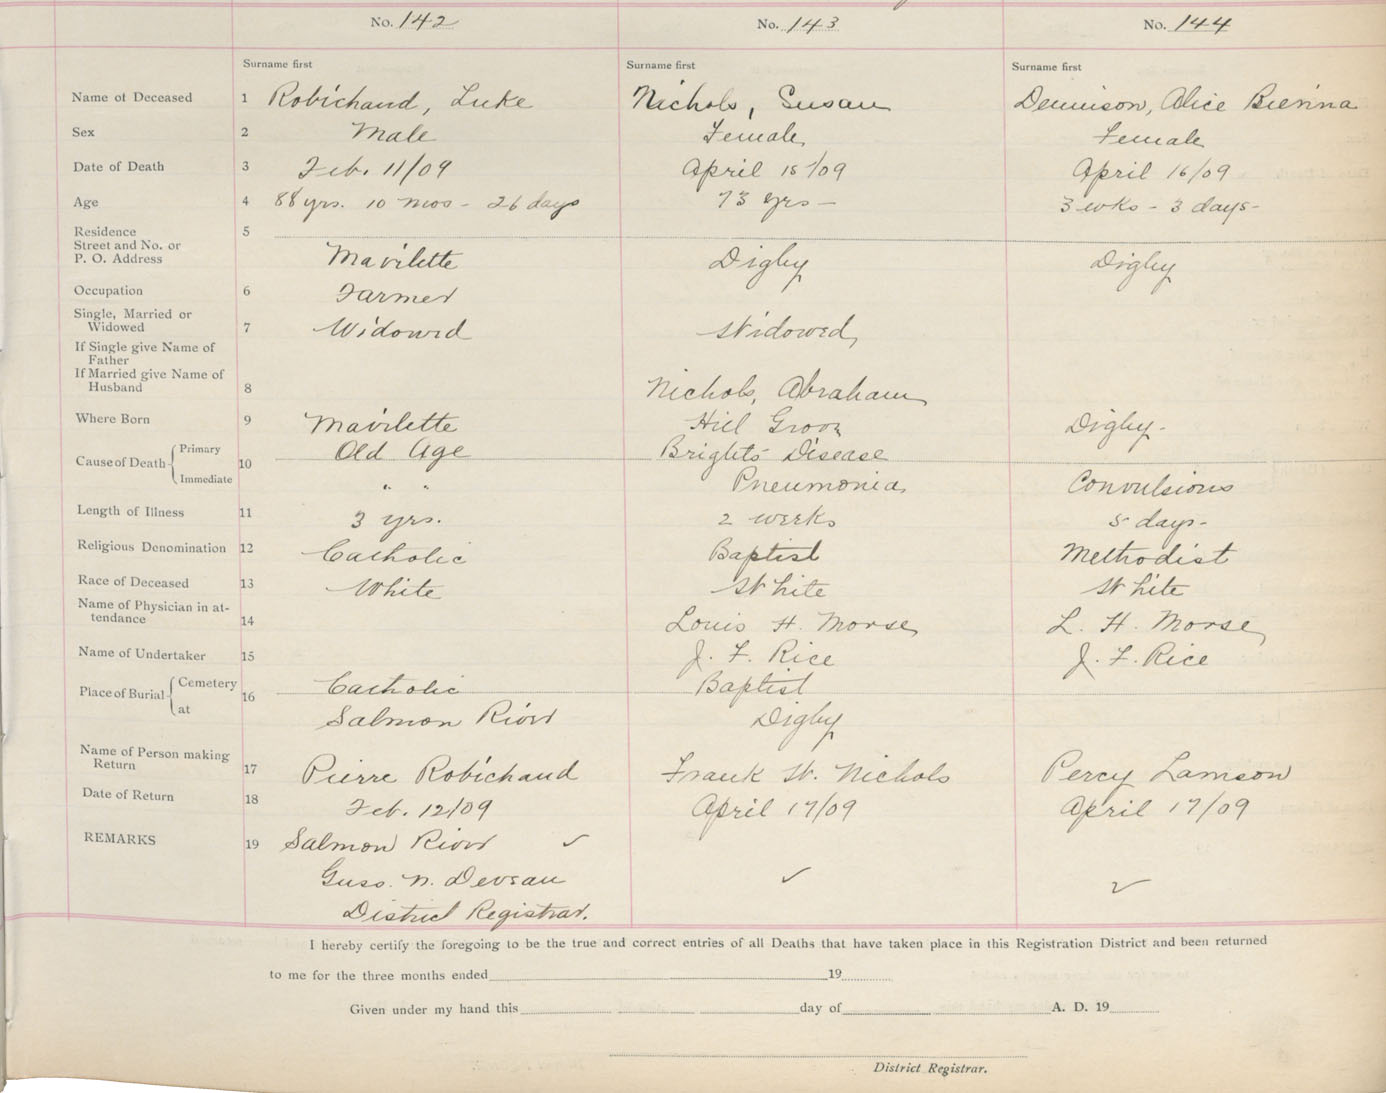 No. 142 No. 143 No. 144
Surname first Surname first Surname first
Name of Deceased 1 Robichaud, Luke Nichols, Susan Dennison, Alice
Sex 2 Male Female Female
Date of Death 3 Feb. 11/09 April 15/09 April 16/09
Age 4 88 yrs. 10 mos - 26 days 73 yrs - 3 wks - 3 days -
Residence 5
Street and No. or
P. O. Address Mavilette Digby Digby
Occupation 6 Farmer
Single, Married or
Widowed 7 Widowed Widowed
If Single give Name of
Father
If Married give Name of
Husband 8 Nichols, Abraham
Where Born 9 Mavilette Hill Grove Digby -
Cause of Death Primary 10 Old Age Brights Disease
Immediate " " Pneumonia Convulsions
Length of Illness 11 3 yrs. 2 weeks 5 days -
Religious Denomination 12 Catholic Baptist Methodist
Race of Deceased 13 White White White
Name of Physician in at-
tendance 14 Louis H. Morse L. H. Morse
Name of Undertaker 15 J. F. Rice J. F. Rice
Place of Burial Cemetery 16 Catholic Baptist
at Salmon River Digby
Name of Person making
Return 17 Pierre Robichaud Frank W. Nichols Percy Lamson
Date of Return 18 Feb. 12/09 April 17/09 April 17/09
REMARKS 19 Salmon River ✓
Guss. N. Deveau ✓ ✓
District Registrar.
I hereby certify the foregoing to be the true and correct entries of all Deaths that have taken place in this Registration District and been returned
to me for the three months ended 19
Given under my hand this day of A. D. 19
District Registrar.